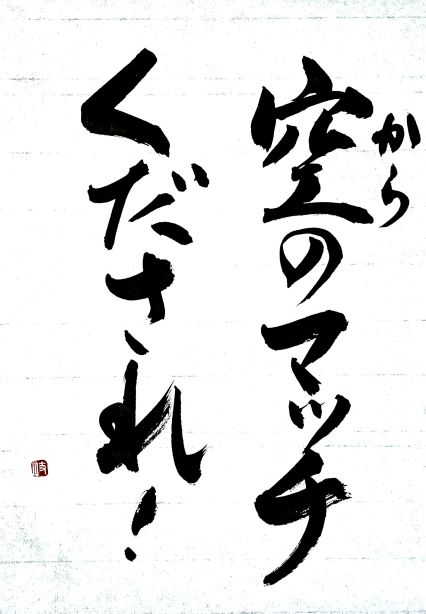 空のマッチ
から
くだされ！